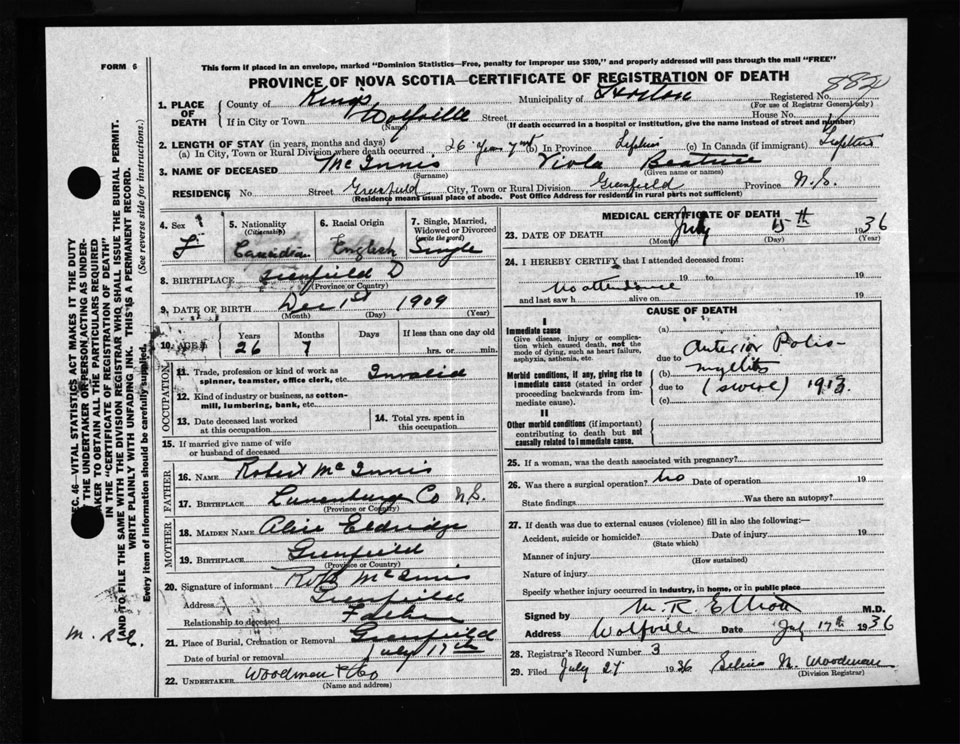 FORM 6
This form if placed in an envelope, marked "Dominion Statistics—Free, penalty for improper use $300," and properly addressed will pass through the mail "FREE"
PROVINCE OF NOVA SCOTIA—CERTIFICATE OF REGISTRATION OF DEATH
1. PLACE OF DEATH
County of Kings Municipality of Horton Registered No.
(For use of Registrar General only)
If in City or Town Wolfville Street House No.
(Name) (If death occurred in a hospital or institution, give the name instead of street and number)
2. LENGTH OF STAY (in years, months and days)
(a) In City, Town or Rural Division where death occurred 26 years 7 mt (b) In Province Lifetime (c) In Canada (if immigrant) Lifetime
3. NAME OF DECEASED McInnis Viola Beatrice
(Surname) (Given name or names)
RESIDENCE No Street Greenfield City, Town or Rural Division Greenfield Province N.S.
(Residence means usual place of abode. Post Office Address for residents in rural parts not sufficient)
4. Sex F
5. Nationality (Citizenship) Canadian
6. Racial Origin English
7. Single, Married, Widowed or Divorced (write the word) Single
8. BIRTHPLACE Greenfield
(Province or Country)
9. DATE OF BIRTH Dec 1st 1909
(Month) (Day) (Year)
10. AGE Years Months Days If less than one day old
26 7 hrs. or min.
OCCUPATION
11. Trade, profession or kind of work as spinner, teamster, office clerk, etc. Invalid
12. Kind of industry or business, as cotton-mill, lumbering, bank, etc.
13. Date deceased last worked at this occupation
14. Total yrs. spent in this occupation
15. If married give name of wife or husband of deceased
FATHER
16. NAME Robert McInnis
17. BIRTHPLACE Lunenburg Co N.S.
(Province or Country)
MOTHER
18. MAIDEN NAME Alice Eldridge
19. BIRTHPLACE Greenfield
(Province or Country)
20. Signature of informant Robt McInnis
Address Greenfield
Relationship to deceased Father
21. Place of Burial, Cremation or Removal Greenfield
Date of burial or removal July 17th
22. UNDERTAKER Woodman & Co
(Name and address)
MEDICAL CERTIFICATE OF DEATH
23. DATE OF DEATH July 15th 1936
(Month) (Day) (Year)
24. I HEREBY CERTIFY that I attended deceased from:
19 to 19
no attendance
and last saw h alive on 19
CAUSE OF DEATH
I
Immediate cause
Give disease, injury, or complication which caused death, not the mode of dying, such as heart failure, asphyxia, asthenia, etc.
Morbid conditions, if any, giving rise to immediate cause (stated in order proceeding backwards from immediate cause).
II
Other morbid conditions (if important) contributing to death but not causally related to immediate cause.
(a) Anterior Polio-
due to
(b) myelitis
due to (severe) 1913
(c)
25. If a woman, was the death associated with pregnancy?
26. Was there a surgical operation? No Date of operation 19
State findings Was there an autopsy?
27. If death was due to external causes (violence) fill in also the following:—
Accident, suicide or homicide? Date of injury 19
(State which)
Manner of injury
(How sustained)
Nature of injury
Specify whether injury occurred in industry, in home, or in public place
Signed by M. R. Elliott M.D.
Address Wolfville Date July 17th 1936
28. Registrar's Record Number 3
29. Filed July 27 1936 M. Woodman
(Division Registrar)
SEC. 46—VITAL STATISTICS ACT MAKES IT THE DUTY
OF THE UNDERTAKER OR PERSON ACTING AS UNDER-
TAKER TO OBTAIN ALL THE PARTICULARS REQUIRED
IN THE "CERTIFICATE OF REGISTRATION OF DEATH"
AND TO FILE THE SAME WITH THE DIVISION REGISTRAR WHO SHALL ISSUE THE BURIAL PERMIT.
WRITE PLAINLY WITH UNFADING INK. THIS IS A PERMANENT RECORD.
Every item of information should be carefully supplied. (See reverse side for instructions.)